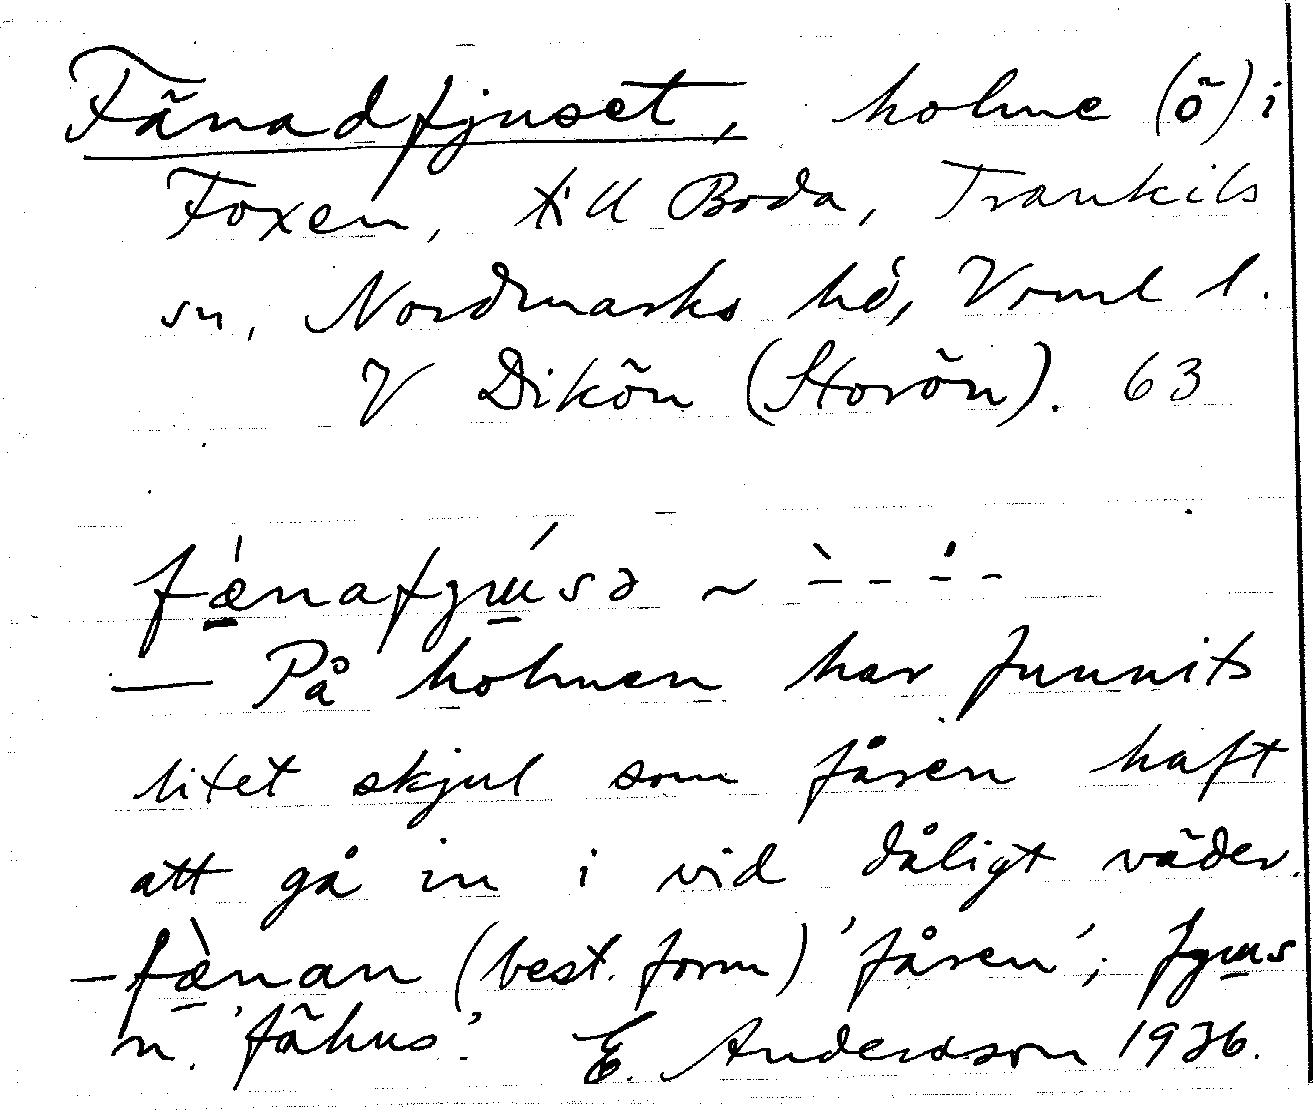 Fänadfjuset, holme (ö) i
Foxen, till Boda, Trankils
sn, Nordmarks hd, Vrml l.
V Dikön (Storön). 63
fǽnafjɯ́sə ~ ̀- - ́- -
— På holmen har funnits
litet skjul som fåren haft
att gå in i vid dåligt väder.
– fæ̀nan (best. form) 'fåren'; fjɯs
n. 'fähus'. E. Andersson 1936.